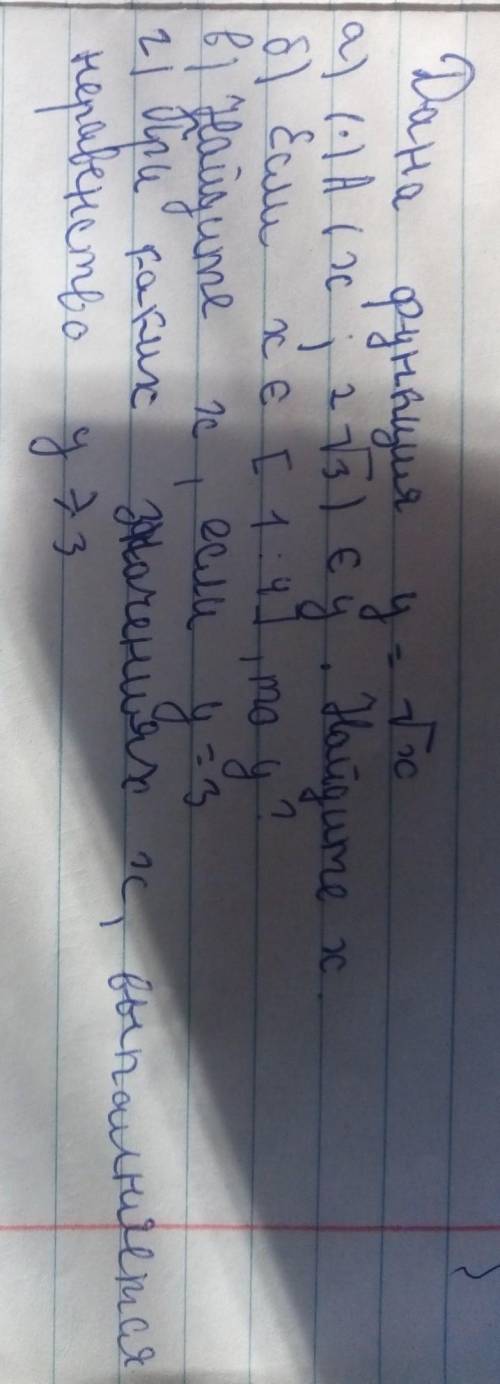 Дана функция y = √x
а) (·) A (x ; 2√3) ∈ y . Найдите x.
б) Если x ∈ [1 ; 4] , то y ?
в) Найдите x, если y = 3
г) При каких значениях x, выпалняется
неравенство y ⩾ 3